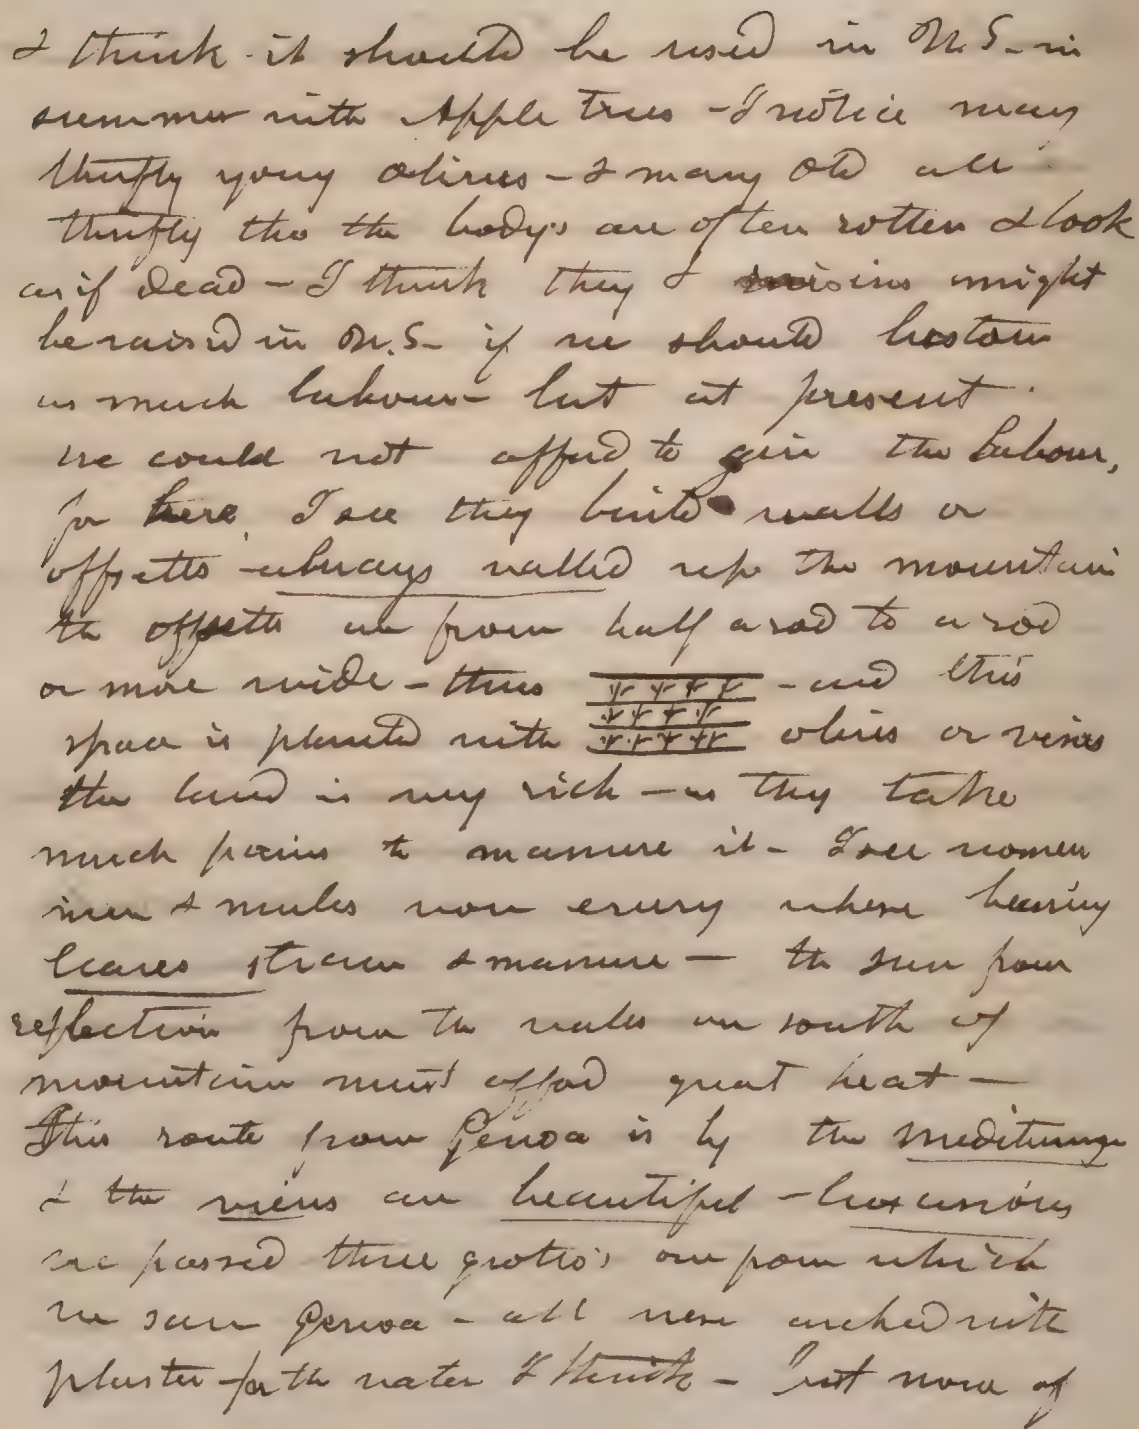 I think it should be used in N.S. in
summer with Apple trees - I notice many
thrifty young olives - & many old all
thrifty tho the body's are often rotten & look
as if dead - I think they & raisins might
be raised in N.S. if we should bestow
as much labour - but at present
we could not afford to give the labour,
for here I see they build walls or
offsetts - always walled up the mountain
the offsetts are from half a rod to a rod
or more wide - thus - and this
space is planted with olives or vines
the land is very rich - as they take
much pains to manure it - I see women
men & mules now every where bearing
leaves straw & manure - the sun from
reflection from the walls on south of
mountain must afford great heat -
This route from Genoa is by the
& the views are beautiful - luxurious
we passed three grotto's one from which
we saw Genoa - all were arched with
plaster for the water I think - but none of